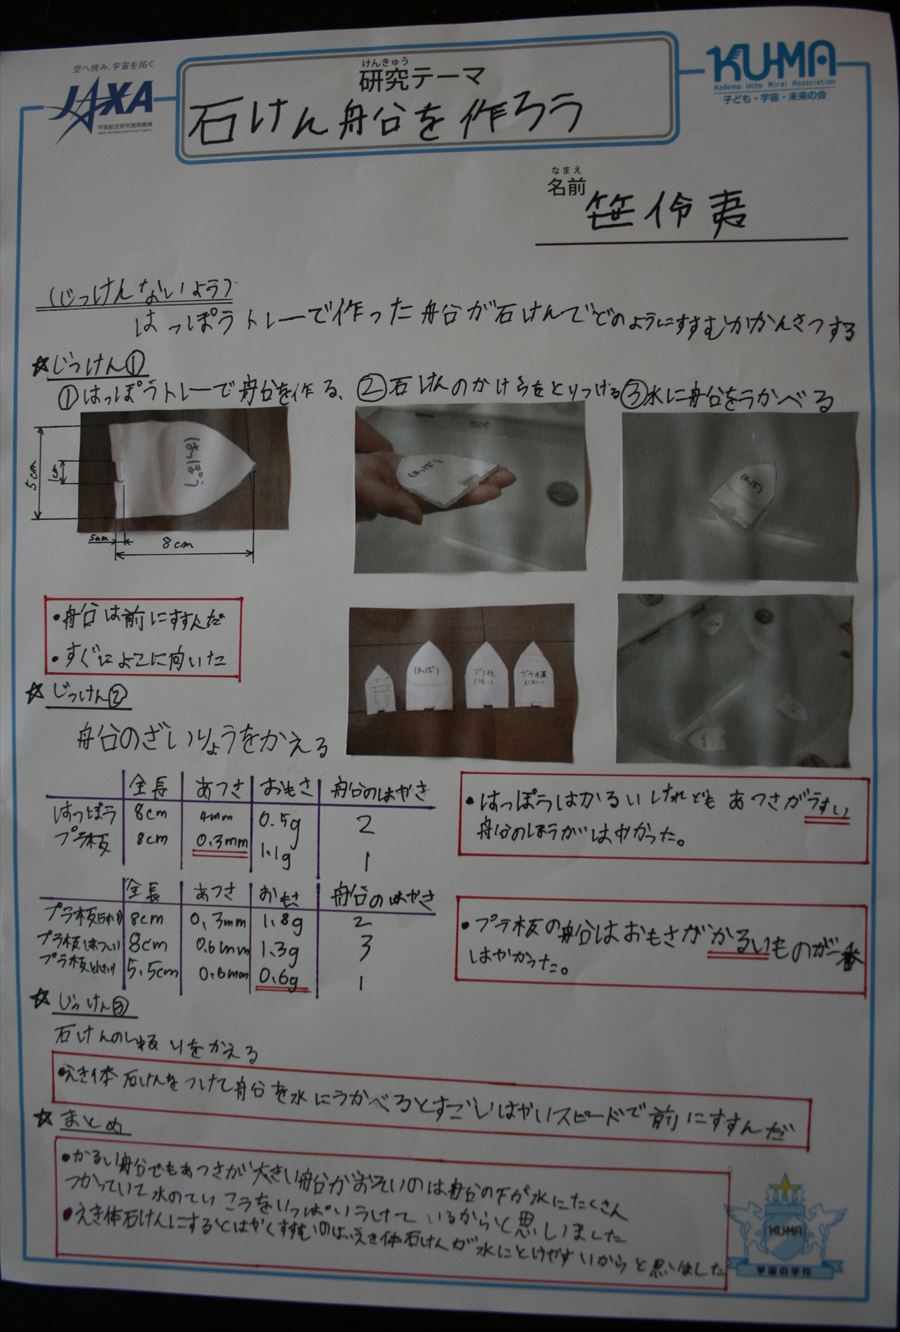 空へ挑み、宇宙を拓く
JAXA
宇宙航空研究開発機構
Japan Aerospace Exploration Agency
けんきゅう
研究テーマ
石けん船を作ろう
KU-MA
Kodomo Uchu Mirai Association
子ども・宇宙・未来の会
なまえ
名前 笹伶夷
(じっけんないよう)
はっぽうトレーで作った船が石けんでどのようにすすむかかんさつする
☆じっけん①
①はっぽうトレーで船を作る、 ②石けんのかけらをとりつける ③水に船をうかべる
5cm
(はっぽう)
5mm
8cm
・船は前にすすんだ
・すぐによこに向いた
☆じっけん②
船のざいりょうをかえる
全長 あつさ おもさ 船のはやさ
はっぽう 8cm 4mm 0.5g 2
プラ板 8cm 0.3mm 1.1g 1
・はっぽうはかるいけれどもあつさがうすい
船のほうがはやかった。
全長 あつさ おもさ 船のはやさ
プラ板 8cm 0.3mm 1.8g 2
プラ板 8cm 0.6mm 1.3g 3
プラ板 5.5cm 0.6mm 0.6g 1
・プラ板の船はおもさがかるいものが一番
はやかった。
☆じっけん③
石けんのしゅるいをかえる
・えき体石けんをつけて船を水にうかべるとすごいはやいスピードで前にすすんだ
☆まとめ
・かるい船でもあつさが大きい船がおそいのは船の下が水にたくさん
つかっていて水のていこうをいっぱいうけているからと思いました
・えき体石けんにするとはやくすすむのは、えき体石けんが水にとけやすいからと思いました
KU-MA
宇宙の学校